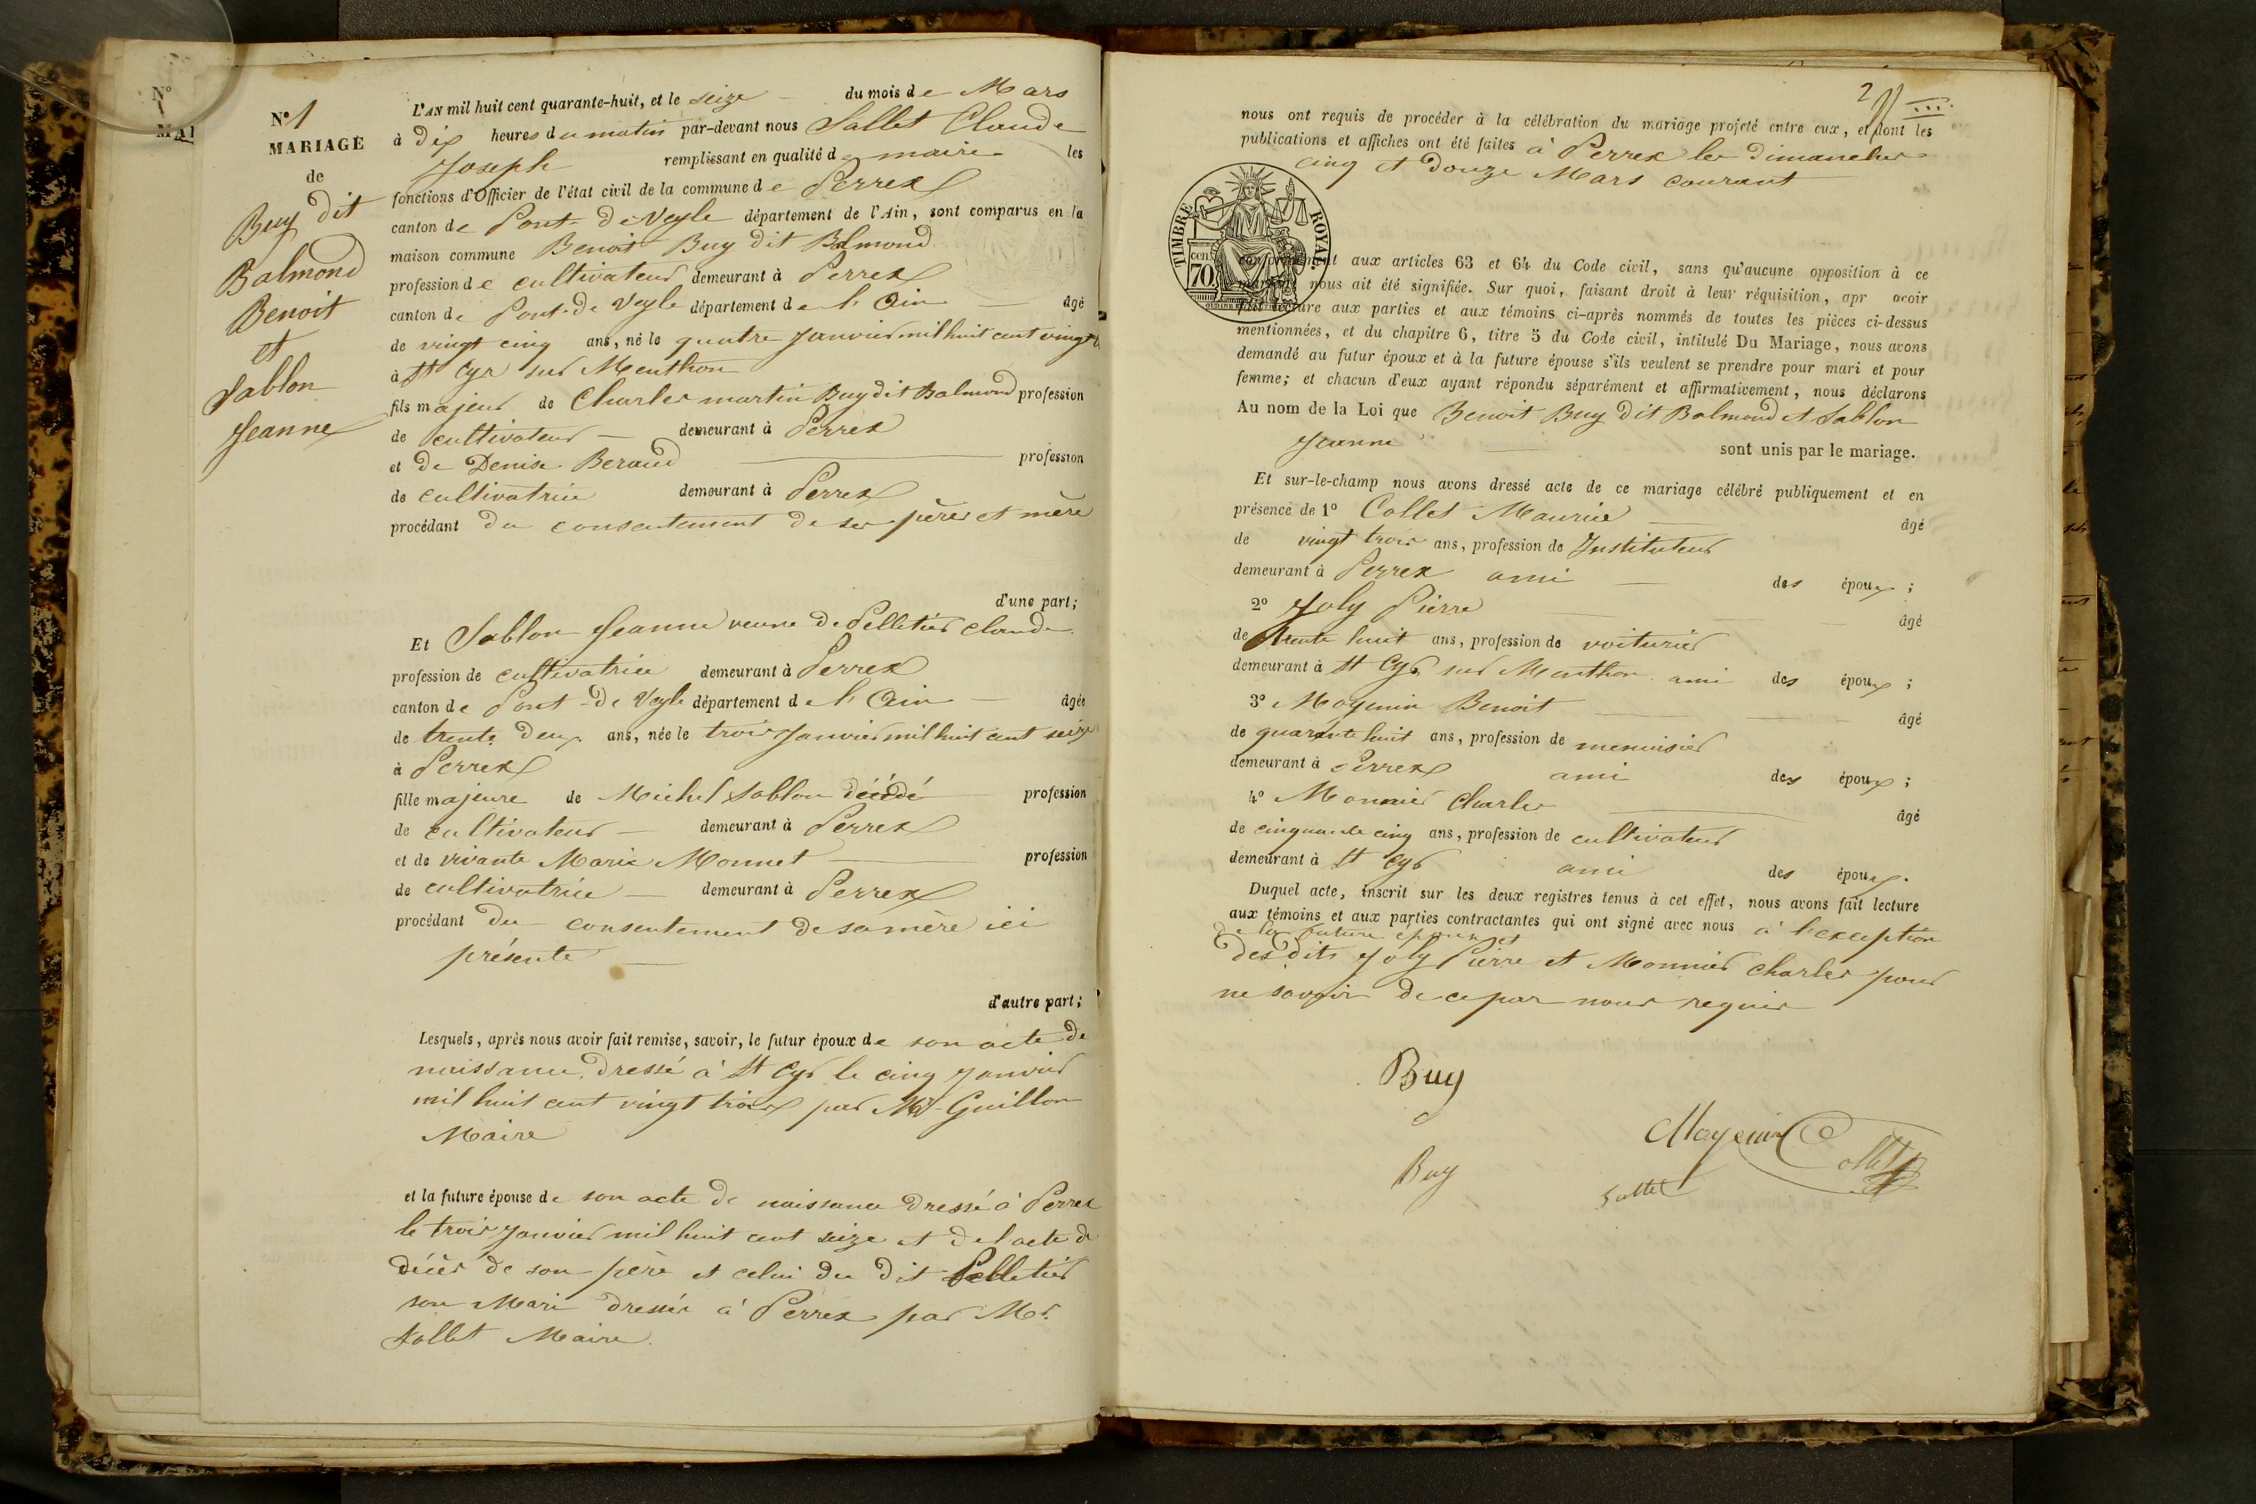 N°
MAI
N° 1
MARIAGE
de
Buy dit
Balmond
Benoit
et
Sablon
Jeanne
L'AN mil huit cent quarante-huit, et le seize du mois de Mars
à dix heures du matin par-devant nous Sallet Claude
Joseph remplissant en qualité de maire les
fonctions d'Officier de l'état civil de la commune de Perrex
canton de Pont-de-Veyle département de l'Ain, sont comparus en la
maison commune Benoit Buy dit Balmond
profession de cultivateur demeurant à Perrex
canton de Pont-de-Veyle département de l'Ain âgé
de vingt cinq ans, né le quatre Janvier mil huit cent vingt
à St Cyr sur Menthon
fils majeur de Charles martin Buy dit Balmond profession
de cultivateur demeurant à Perrex
et de Denise Beraud profession
de cultivatrice demeurant à Perrex
procédant du consentement de ses père et mère
d'une part;
Et Sablon Jeanne veuve de Pelletier Claude
profession de cultivatrice demeurant à Perrex
canton de Pont-de-Veyle département de l'Ain âgée
de trente deux ans, née le trois Janvier mil huit cent seize
à Perrex
fille majeure de Michel Sablon décédé profession
de cultivateur demeurant à Perrex
et de vivante Marie Monnet profession
de cultivatrice demeurant à Perrex
procédant du consentement de sa mère ici
présente
d'autre part;
Lesquels, après nous avoir fait remise, savoir, le futur époux de son acte de
naissance dressé à St Cyr le cinq Janvier
mil huit cent vingt trois par Mr Guillon
Maire
et la future épouse de son acte de naissance dressé à Perrex
le trois Janvier mil huit cent seize et de l'acte de
décès de son père et celui du dit Pelletier
son Mari dressés à Perrex par Mr
Sallet Maire.
2
nous ont requis de procéder à la célébration du mariage projeté entre eux, et dont les
publications et affiches ont été faites à Perrex les dimanches
cinq et douze Mars courant
TIMBRE ROYAL
70 cen
conformément aux articles 63 et 64 du Code civil, sans qu'aucune opposition à ce
mariage nous ait été signifiée. Sur quoi, faisant droit à leur réquisition, apr avoir
fait lecture aux parties et aux témoins ci-après nommés de toutes les pièces ci-dessus
mentionnées, et du chapitre 6, titre 5 du Code civil, intitulé Du Mariage, nous avons
demandé au futur époux et à la future épouse s'ils veulent se prendre pour mari et pour
femme; et chacun d'eux ayant répondu séparément et affirmativement, nous déclarons
Au nom de la Loi que Benoit Buy dit Balmond et Sablon
Jeanne sont unis par le mariage.
Et sur-le-champ nous avons dressé acte de ce mariage célébré publiquement et en
présence de 1° Collet Maurice âgé
de vingt trois ans, profession de Instituteur
demeurant à Perrex ami des époux;
2° Joly Pierre âgé
de trente huit ans, profession de voiturier
demeurant à St Cyr sur Menthon ami des époux;
3° Moyenin Benoit âgé
de quarante huit ans, profession de menuisier
demeurant à Perrex ami des époux;
4° Monnier Charles âgé
de cinquante cinq ans, profession de cultivateur
demeurant à St Cyr ami des époux.
Duquel acte, inscrit sur les deux registres tenus à cet effet, nous avons fait lecture
aux témoins et aux parties contractantes qui ont signé avec nous à l'exception
de la future épouse et
des dits Joly Pierre et Monnier Charles pour
ne savoir de ce par nous requis
Buy
Moyenin Collet
Buy Sallet